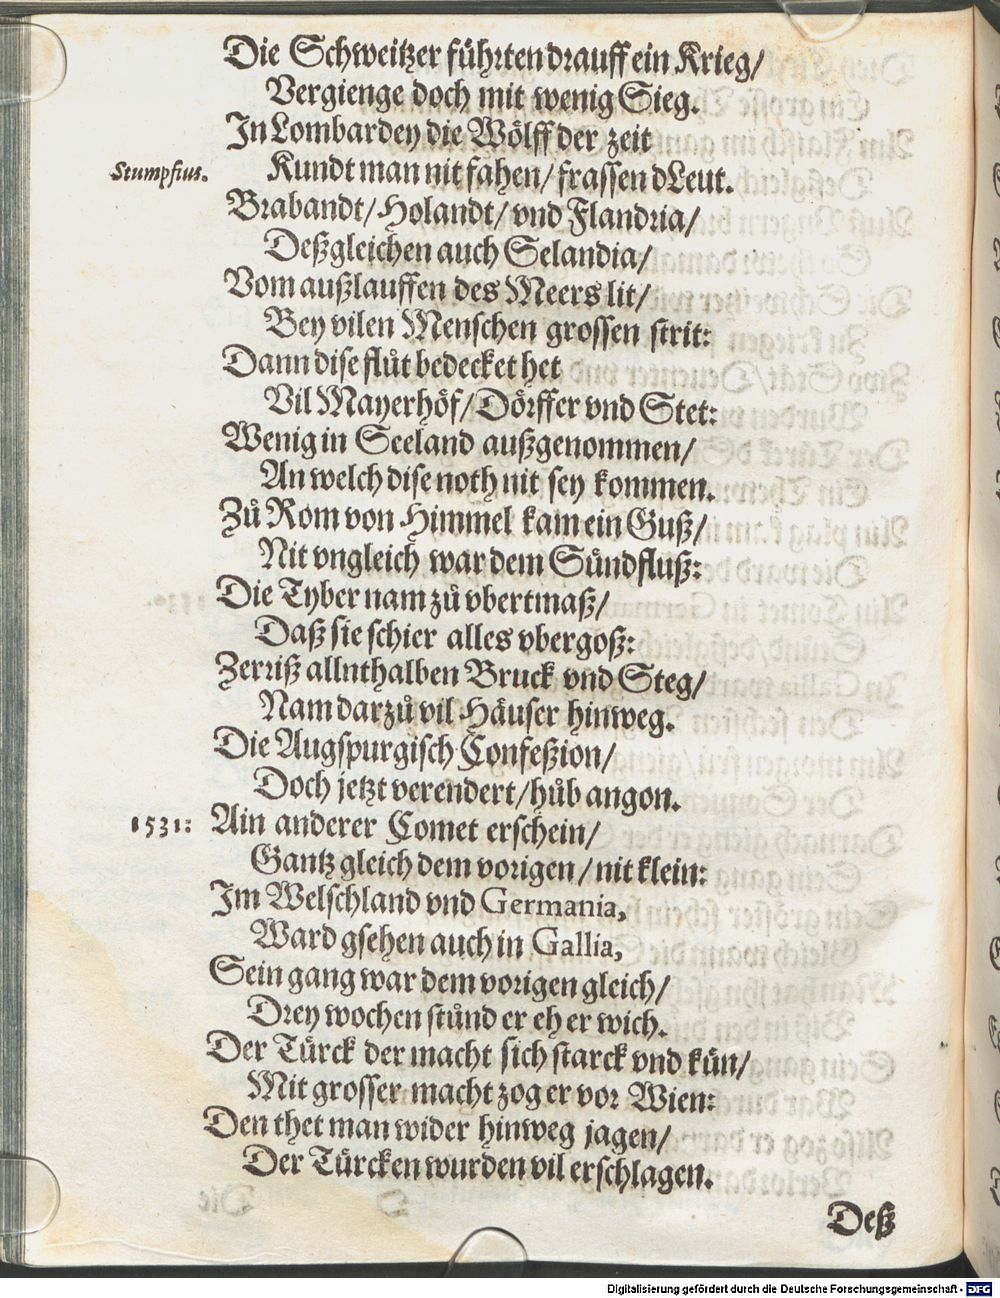 Die Schweitzer führten drauff ein Krieg/
Vergienge doch mit wenig Sieg.
In Lombardey die Wölff der zeit
Stumpfius. Kundt man nit fahen/ frassen dLeut.
Brabandt/ Holandt/ vnd Flandria/
Deßgleichen auch Selandia/
Vom außlauffen des Meers lit/
Bey vilen Menschen grossen strit:
Dann dise flůt bedecket het
Vil Mayerhöf/ Dörffer vnd Stet:
Wenig in Seeland außgenommen/
An welch dise noth nit sey kommen.
Zů Rom von Himmel kam ein Guß/
Nit vngleich war dem Sündfluß:
Die Tyber nam zů vbertmaß/
Daß sie schier alles vbergoß:
Zerriß allnthalben Bruck vnd Steg/
Nam darzů vil Häuser hinweg.
Die Augspurgisch Confeßion/
Doch jetzt verendert/ hůb angon.
1531: Ain anderer Comet erschein/
Gantz gleich dem vorigen/ nit klein:
Im Welschland vnd Germania,
Ward gsehen auch in Gallia,
Sein gang war dem vorigen gleich/
Drey wochen stůnd er eh er wich.
Der Türck der macht sich starck vnd kün/
Mit grosser macht zog er vor Wien:
Den thet man wider hinweg jagen/
Der Türcken wurden vil erschlagen.
Deß
Digitalisierung gefördert durch die Deutsche Forschungsgemeinschaft - DFG